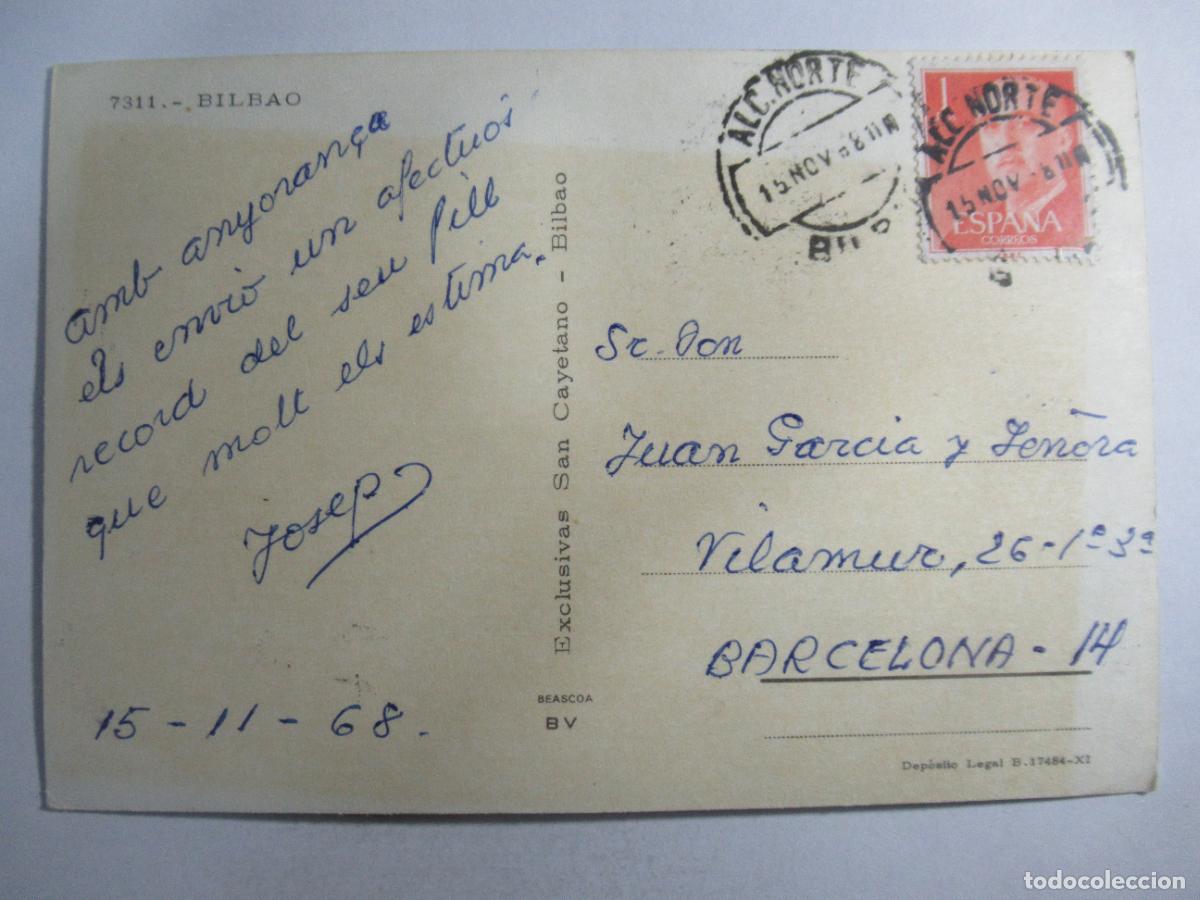 7311.- BILBAO
amb anyorança
els envio un afectuós
record del seu fill
que molt els estima.
Josep
15 - 11 - 68.
Exclusivas San Cayetano - Bilbao
BEASCOA
BV
ALC. NORTE
15 NOV 68 11
BILB
1
ALC. NORTE
15 NOV
ESPAÑA
CORREOS
Sr. Don
Juan Garcia y Señora
Vilamur, 26-1º 3ª
BARCELONA - 14
Depósito Legal B.17484-XI
todocoleccion